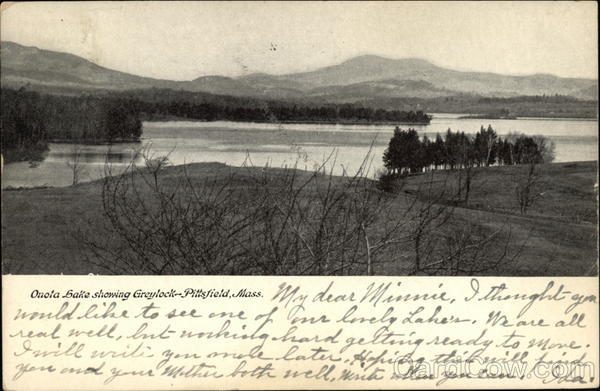 Onota Lake showing Greylock—Pittsfield, Mass. My dear Minnie, I thought you
would like to see one of our lovely Lake's. We are all
real well, but working hard getting ready to move.
I will write you more later. Hoping that will find
you and your Mother both well, with when you come Ida.
CardCow.com